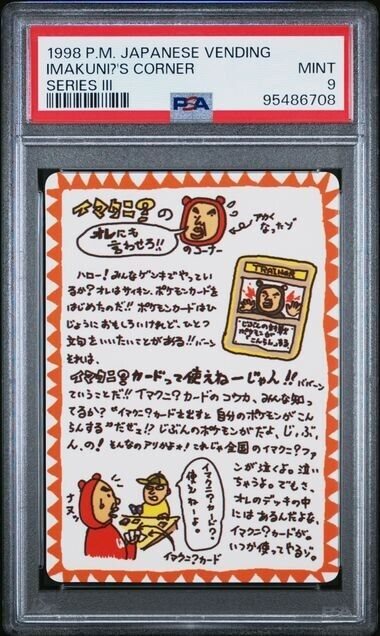 1998 P.M. JAPANESE VENDING
IMAKUNI?'S CORNER
MINT
SERIES III
9
PSA
95486708
イマクニ?の
オレにも
言わせろ!!
のコーナー
アカく
なったゾ
ハロー!みんなゲンキでやってい
るか?オレはサイキン、ポケモンカードを
はじめたのだ!!ポケモンカードはひ
じょうにおもしろいけれど、ひとつ
文句をいいたいことがある!!バーン
それは、
TRAINER
じぶんの
ポケモンが
こんらんする
イマクニ?カードって使えねーじゃん!!ババーン
ていうことだ!!イマクニ?カードのコウカ、みんな知っ
てるか?"イマクニ?カードを出すと自分のポケモンがこん
らんする"だぜェ!?じぶんのポケモンがだよ、じ、ぶ、
ん、の!そんなのアリかよォ!これじゃ全国のイマクニ?ファ
ンが泣くよ。泣い
ちゃうよ。でもさ、
オレのデッキの中
にはあるんだよね、
イマクニ?カードが。
いつか使ってやるゾ。
イマクニ?カード?
使えねーよ。
ナヌッ
イマクニ?カード